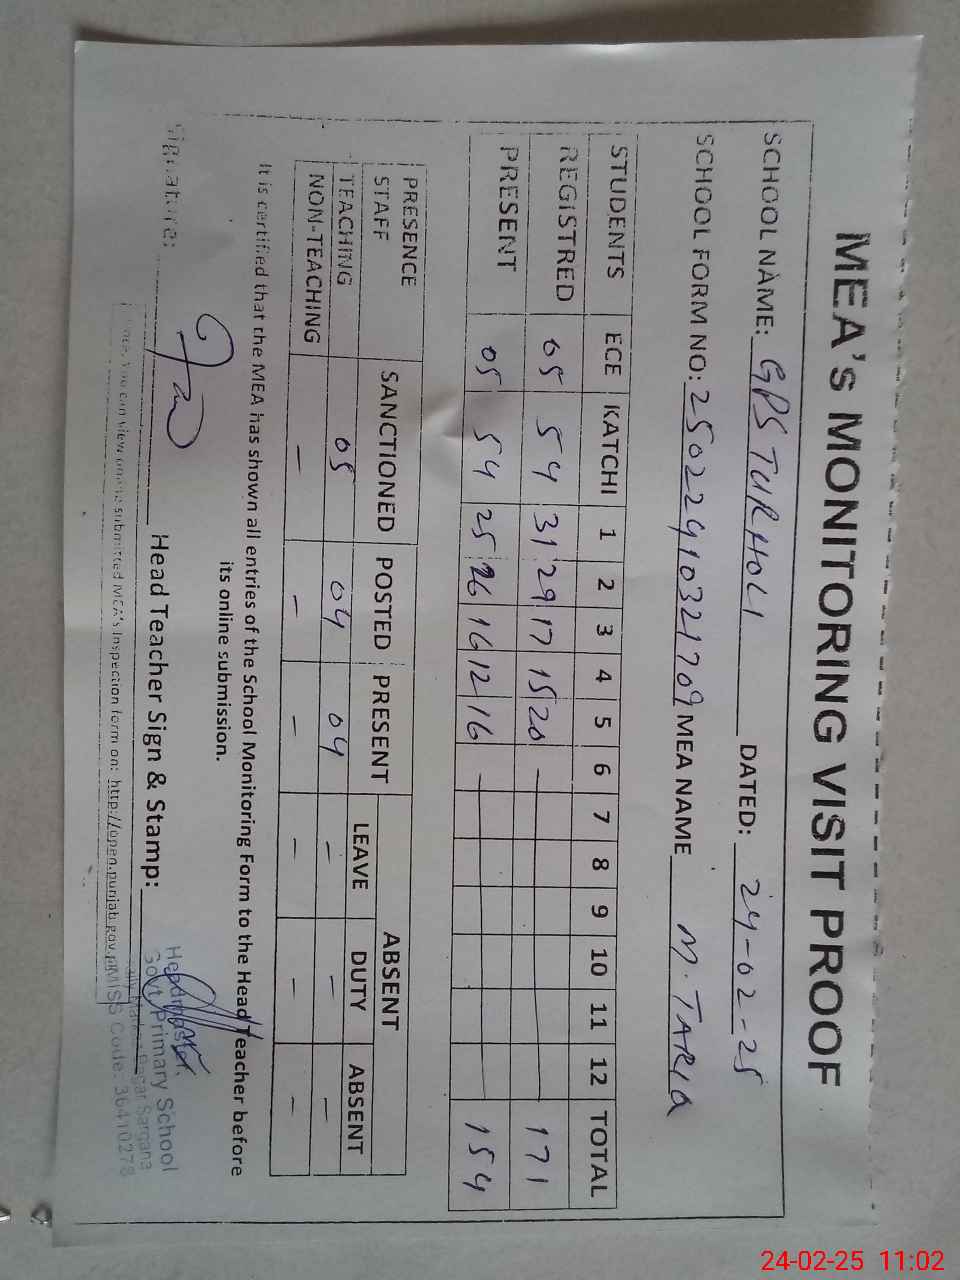 MEA's MONITORING VISIT PROOF
SCHOOL NAME: GPS TURHOLI DATED: 24-02-25
SCHOOL FORM NO: 2502291032170 9 MEA NAME M. TARIQ
STUDENTS ECE KATCHI 1 2 3 4 5 6 7 8 9 10 11 12 TOTAL
REGISTRED 05 54 31 29 17 15 20 — 171
PRESENT 05 54 25 26 16 12 16 — 154
PRESENCE STAFF SANCTIONED POSTED PRESENT ABSENT
LEAVE DUTY ABSENT
TEACHING 05 04 04 — — —
NON-TEACHING — — — — — —
It is certified that the MEA has shown all entries of the School Monitoring Form to the Head Teacher before
its online submission.
Signature: Head Teacher Sign & Stamp:
Headmaster
Govt. Primary School
Sargana
EMISS Code: 36410278
You can view online submitted MEA's Inspection form on: http://open.punjab.gov.pk
24-02-25 11:02